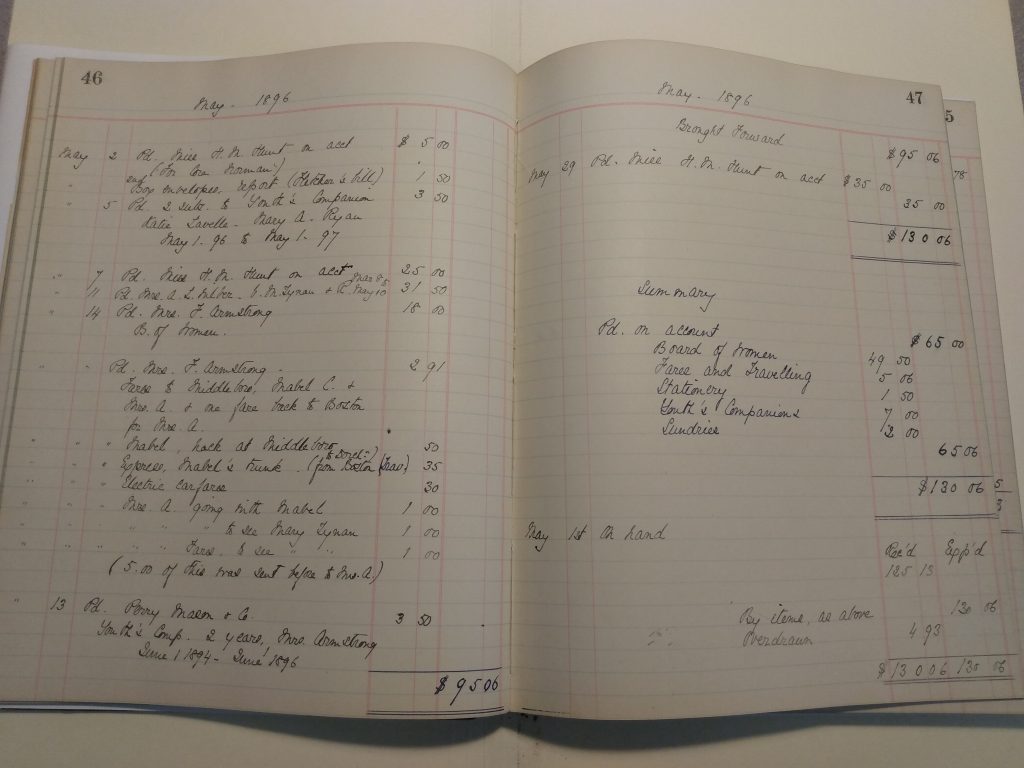 46
May - 1896
May 2 Pd. Miss H. M. Hunt on acct $ 5 00
(for Cora Norman)
" Box envelopes, report (Fletcher's bill) 1 50
" 5 Pd. 2 subs. to Youth's Companion 3 50
Katie Lavelle. Mary A. Ryan
May 1 - 96 to May 1 - 97
" 7 Pd. Miss H. M. Hunt on acct 25 00
" 11 Pd. Mrs. A. L. M. Tynan + 31 50
" 14 Pd. Mrs. F. Armstrong 18 00
B. of Women.
" " Pd. Mrs. F. Armstrong - 2 91
Fares to Middleboro, Mabel C. &
Mrs. A. & one fare back to Boston
for Mrs. A.
" " " Mabel, hack at Middleboro 50
" " " Express, Mabel's trunk. (from Boston 35
" " " Electric carfares 30
" " " Mrs. A. going with Mabel 1 00
" " " " " to see Mary Tynan 1 00
" " " Fares to see " " 1 00
(5.00 of this was sent before to Mrs. A.)
" 13 Pd. Perry Mason & Co. 3 50
Youth's Comp. 2 years, Mrs. Armstrong
June 1 1894 - June 1 1896
$ 95 06
May - 1896
47
5
Brought Forward
$95 06
78
May 29 Pd. Miss H. M. Hunt on acct $35 00
35 00
$130 06
Summary
Pd. on account $65 00
Board of Women 49 50
Fares and Travelling 5 06
Stationery 1 50
Youth's Companions 7 00
Sundries 2 00
65 06
$130 06
5
3
May 1st On hand
Rec'd Exp'd
125 13
By items, as above 130 06
Overdrawn 4 93
$130 06 130 06